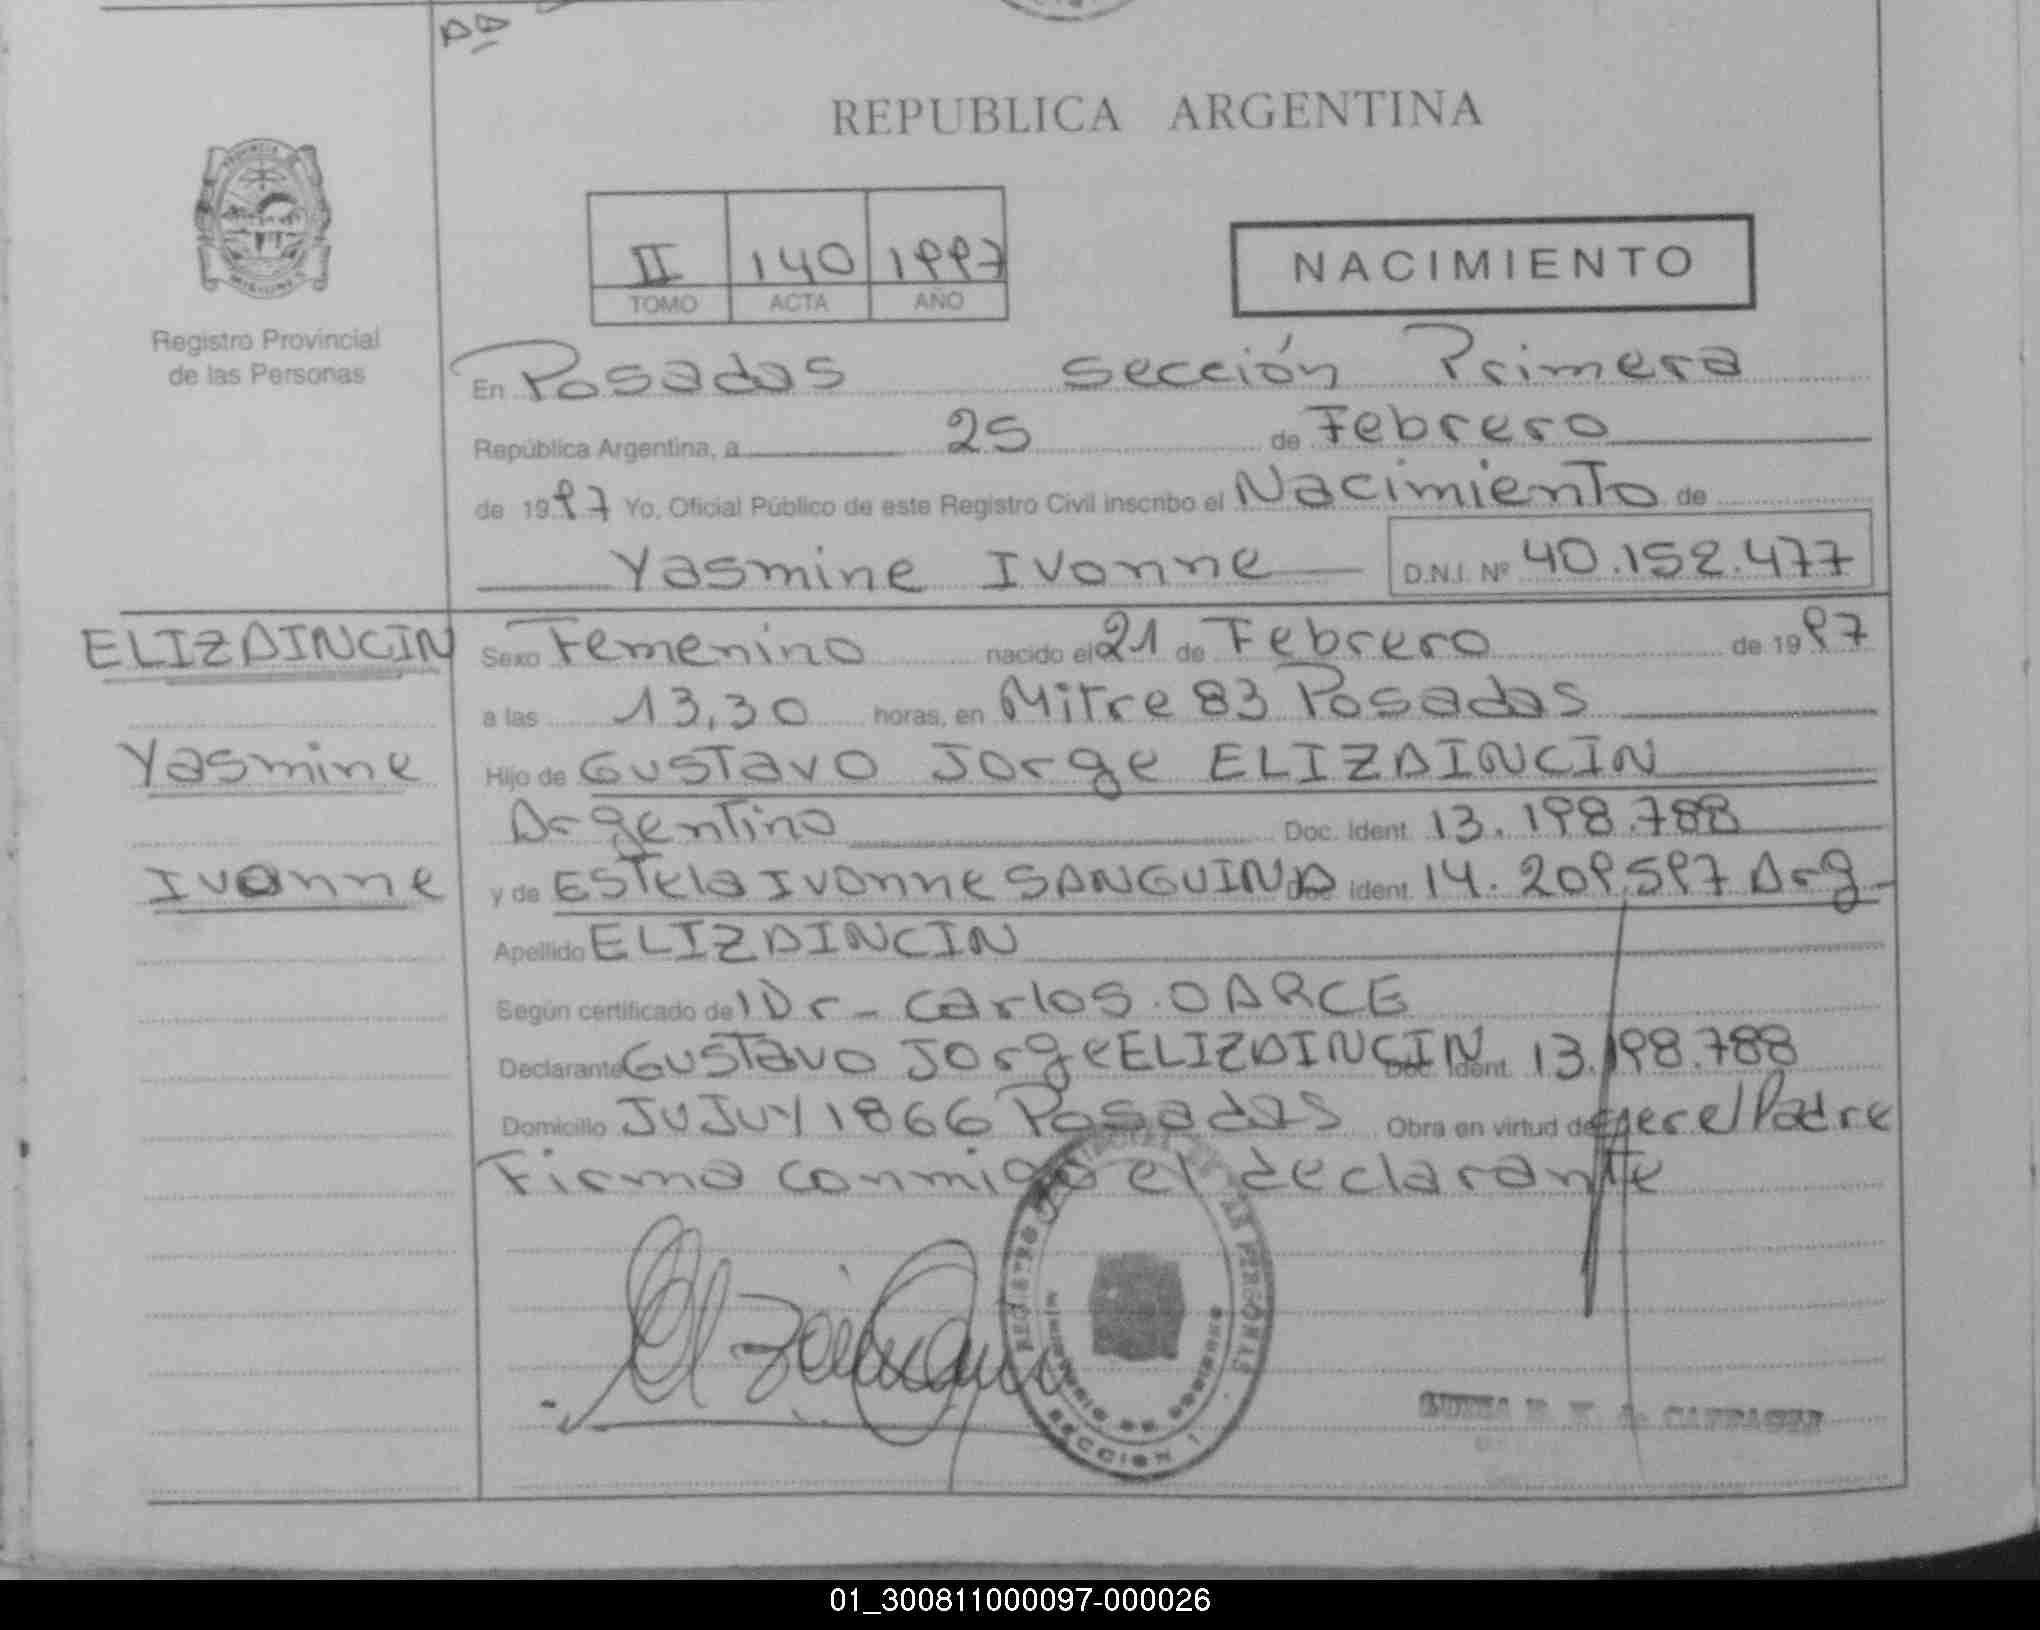 REPUBLICA ARGENTINA
II 140 1997
TOMO ACTA AÑO
NACIMIENTO
Registro Provincial
de las Personas
En Posadas sección Primera
República Argentina, a 25 de Febrero
de 1997 Yo, Oficial Público de este Registro Civil inscribo el Nacimiento de
Yasmine Ivonne D.N.I. Nº 40.152.477
ELIZAINCIN
Yasmine
Ivonne
Sexo Femenino nacido el 21 de Febrero de 1997
a las 13,30 horas, en Mitre 83 Posadas
Hijo de Gustavo Jorge ELIZAINCIN
Argentino Doc. Ident. 13.198.788
y de Estela Ivonne SANGUINA Doc. Ident. 14.209.597 Arg
Apellido ELIZAINCIN
Según certificado de Dr - Carlos O ARCE
Declarante Gustavo Jorge ELIZAINCIN Doc. Ident. 13.198.788
Domicilio JUJUY 1866 Posadas Obra en virtud de ser el Padre
Firma conmigo el declarante
REGISTRO DE LAS PERSONAS
MINISTERIO DE GOBIERNO
SECCION 1
01_300811000097-000026